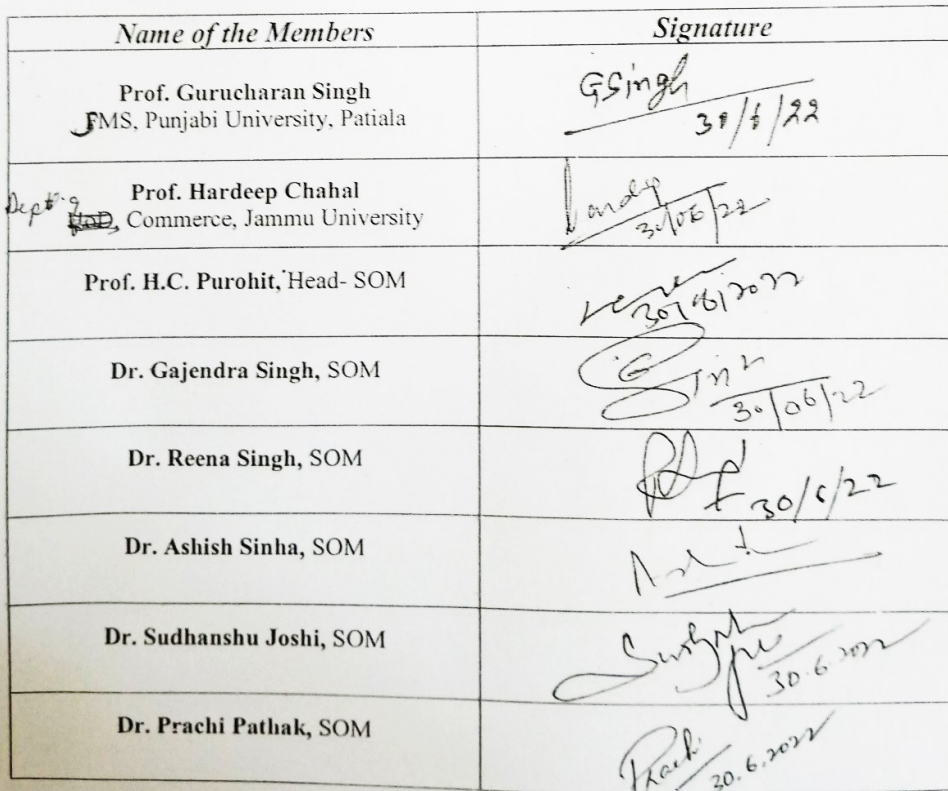 Name of the Members Signature
Prof. Gurucharan Singh
FMS, Punjabi University, Patiala
GSingh
30/6/22
Prof. Hardeep Chahal
Dept. of HOD, Commerce, Jammu University
30/06/22
Prof. H.C. Purohit, Head- SOM
30/6/2022
Dr. Gajendra Singh, SOM
30/06/22
Dr. Reena Singh, SOM
30/6/22
Dr. Ashish Sinha, SOM
Dr. Sudhanshu Joshi, SOM
30.6.2022
Dr. Prachi Pathak, SOM
Prachi
30.6.2022